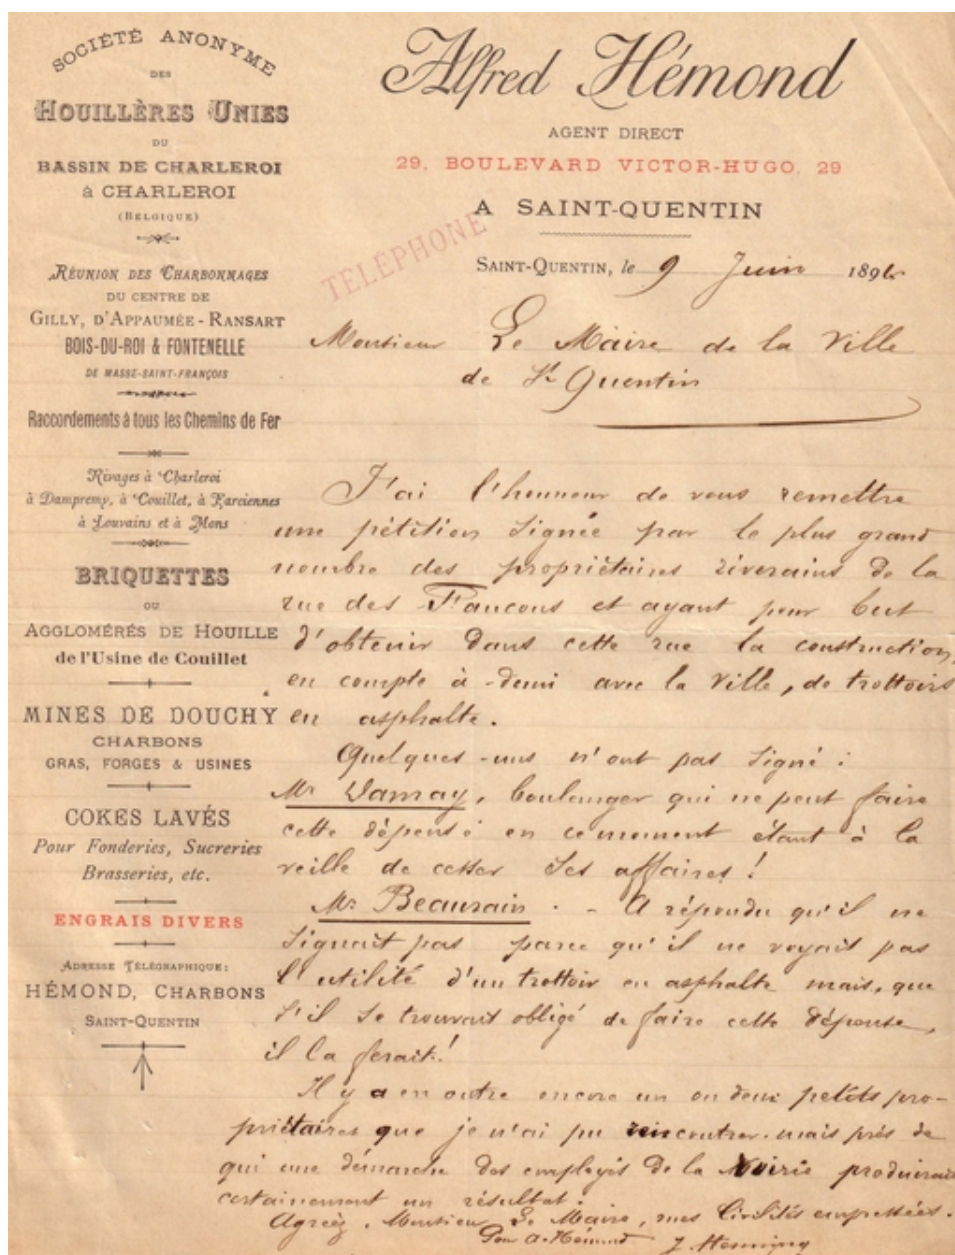 SOCIÉTÉ ANONYME
DES
HOUILLÈRES UNIES
DU
BASSIN DE CHARLEROI
à CHARLEROI
(BELGIQUE)
RÉUNION DES CHARBONNAGES
DU CENTRE DE
GILLY, D'APPAUMÉE-RANSART
BOIS-DU-ROI & FONTENELLE
DE MASSE-SAINT-FRANÇOIS
Raccordements à tous les Chemins de Fer
Rivages à Charleroi
à Dampremy, à Couillet, à Farciennes
à Louvains et à Mons
BRIQUETTES
OU
AGGLOMÉRÉS DE HOUILLE
de l'Usine de Couillet
MINES DE DOUCHY
CHARBONS
GRAS, FORGES & USINES
COKES LAVÉS
Pour Fonderies, Sucreries
Brasseries, etc.
ENGRAIS DIVERS
ADRESSE TÉLÉGRAPHIQUE:
HÉMOND, CHARBONS
SAINT-QUENTIN
Alfred Hémond
AGENT DIRECT
29, BOULEVARD VICTOR-HUGO, 29
A SAINT-QUENTIN
TELEPHONE
SAINT-QUENTIN, le 9 Juin 189
Monsieur Le Maire de la Ville
de St Quentin
J'ai l'honneur de vous remettre
une pétition signée par le plus grand
nombre des propriétaires riverains de la
rue des Faucons et ayant pour but
d'obtenir dans cette rue la construction,
en compte à-demi avec la Ville, de trottoirs
en asphalte.
Quelques-uns n'ont pas signé :
Mr Damay, boulanger qui ne peut faire
cette dépense en ce moment étant à la
veille de cesser ses affaires !
Mr Beaurain. - A répondu qu'il ne
signait pas parce qu'il ne voyait pas
l'utilité d'un trottoir en asphalte mais, que
s'il se trouvait obligé de faire cette dépense,
il la ferait !
Il y a en outre encore un ou deux petits pro-
priétaires que je n'ai pu rencontrer. mais près de
qui une démarche des employés de la Voirie produirait
certainement un résultat.
Agréez, Monsieur Le Maire, mes civilités empressées.
Pour A. Hémond J. Henning